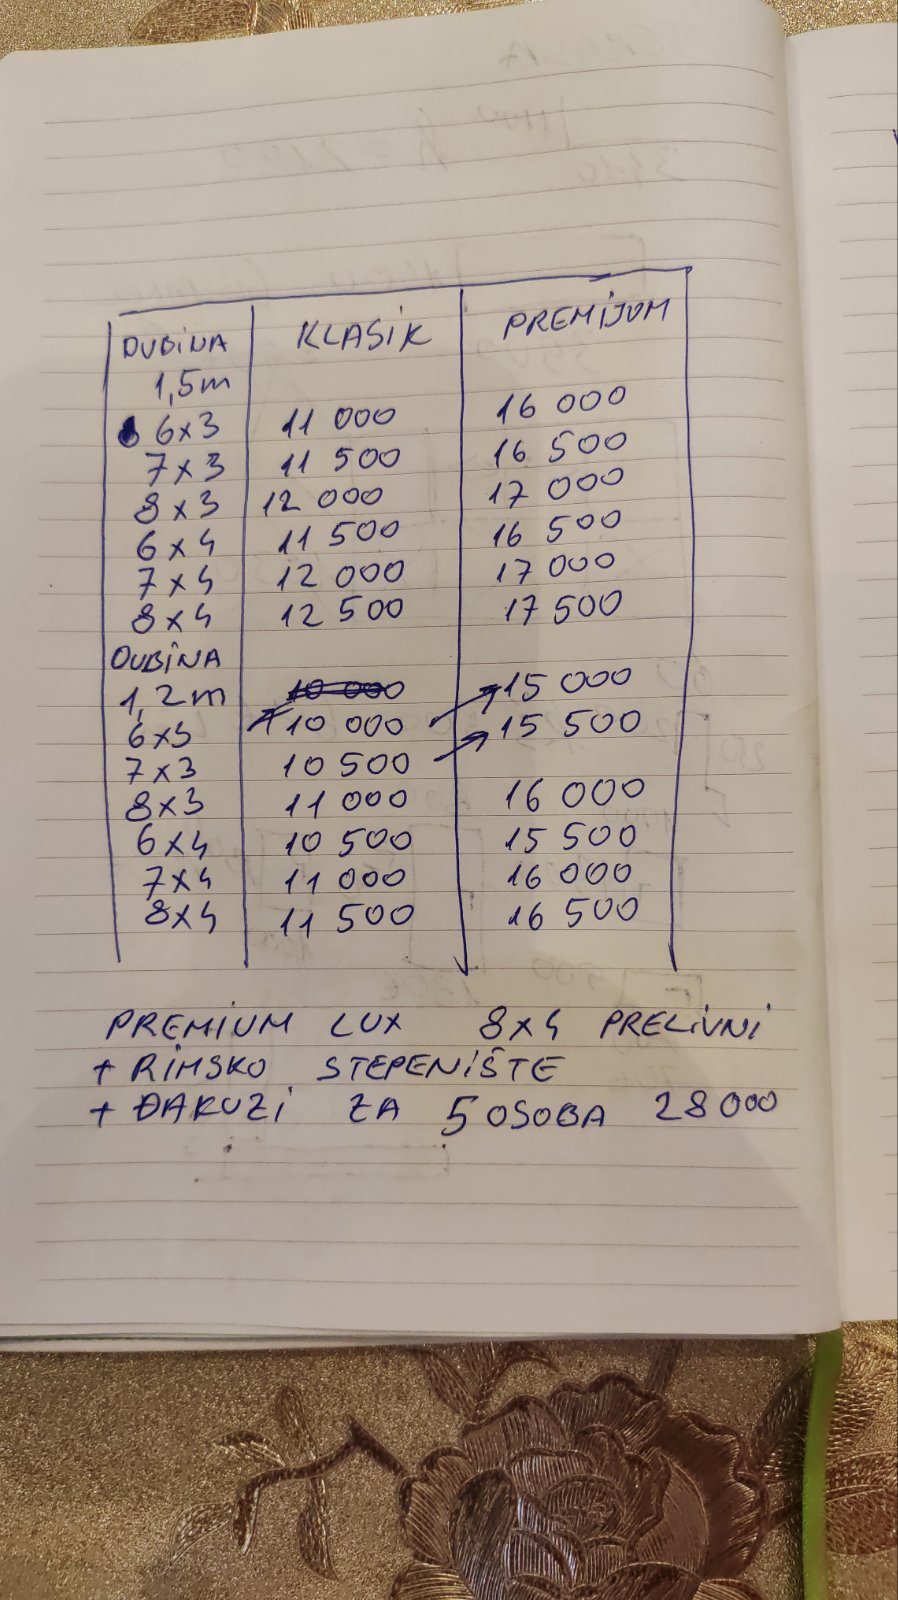 DUBINA KLASIK PREMIJUM
1,5m
6x3 11 000 16 000
7x3 11 500 16 500
8x3 12 000 17 000
6x4 11 500 16 500
7x4 12 000 17 000
8x4 12 500 17 500
DUBINA
1,2m 10 000 15 000
6x3 10 000 15 500
7x3 10 500
8x3 11 000 16 000
6x4 10 500 15 500
7x4 11 000 16 000
8x4 11 500 16 500
PREMIUM LUX 8x4 PRELIVNI
+ RIMSKO STEPENIŠTE
+ ĐAKUZI ZA 5 OSOBA 28000